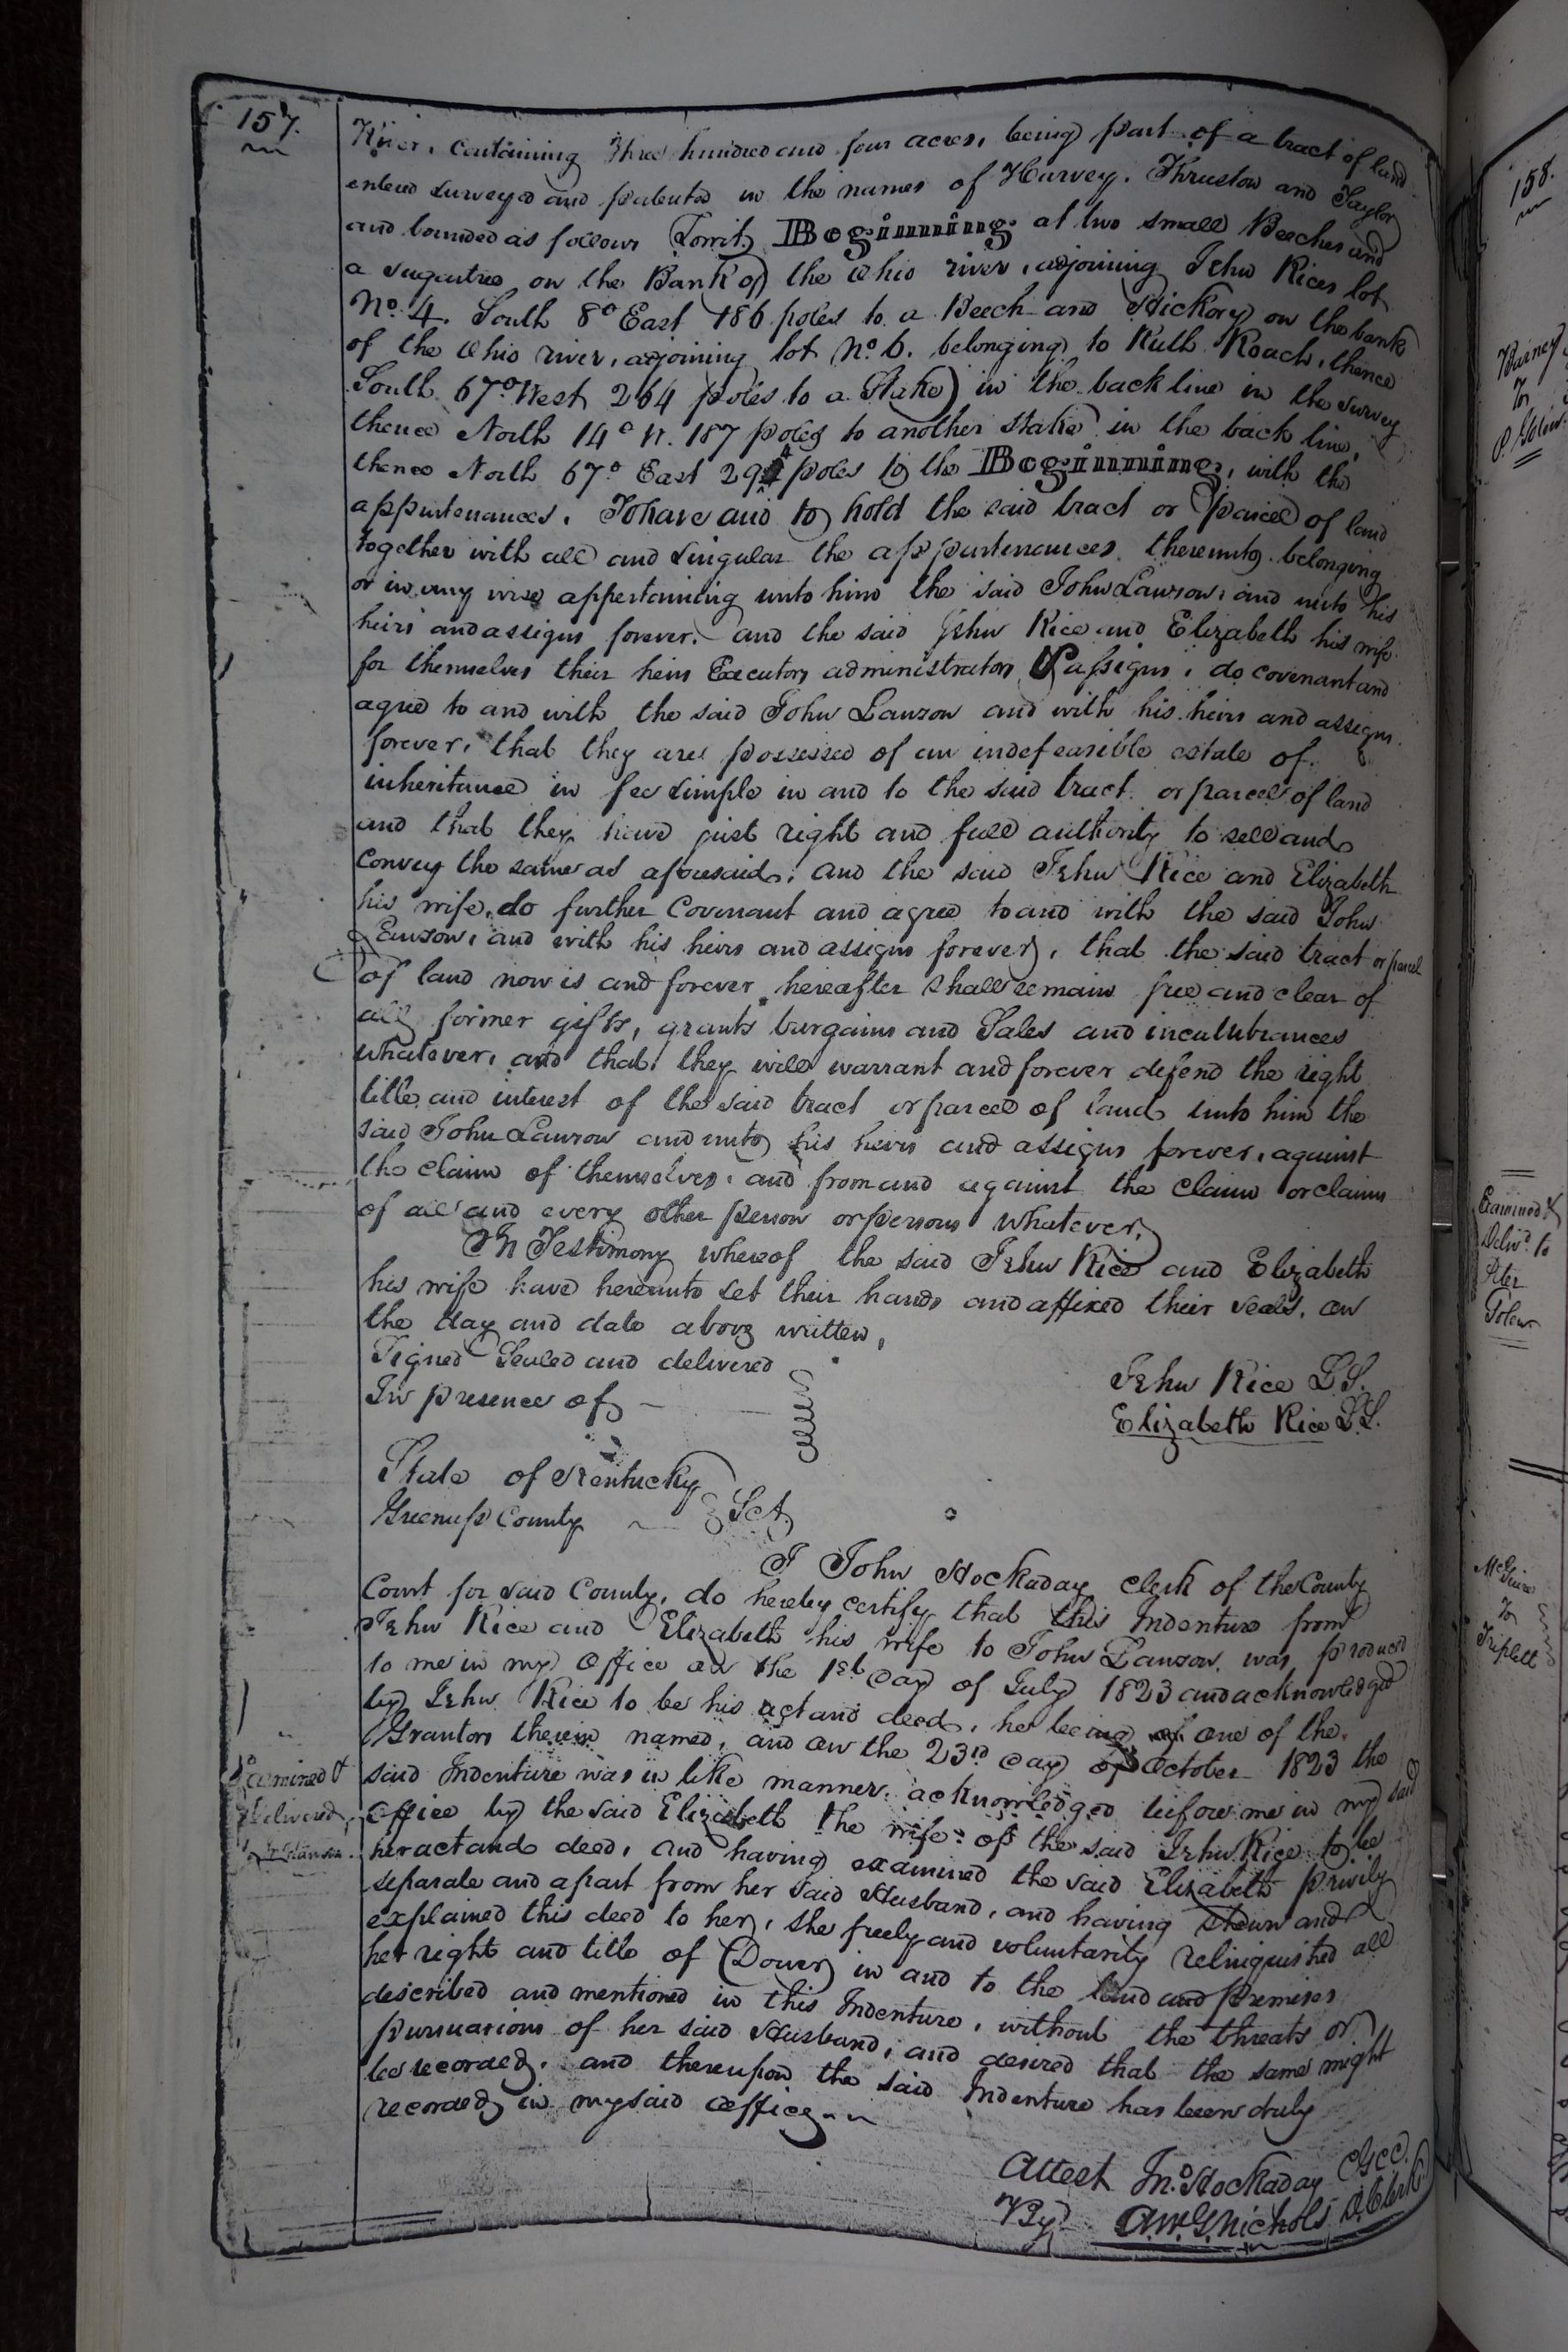 157.
River, containing three hundred and four acres, being part of a tract of land
entered surveyed and patented in the names of Harvey, Thruston and Taylor
and bounded as follows (Towit) Beginning at two small Beeches and
a sugartree on the Bank of the Ohio river, adjoining Jehu Rices lot
No. 4. South 8° East 186 poles to a Beech and Hickory on the bank
of the Ohio river, adjoining lot No. 6. belonging to Ruth Roach, thence
South 67° West 264 poles to a Stake in the back line in the survey
thence North 14° W. 187 poles to another stake in the back line,
thence North 67° East 294 poles to the Beginning, with the
appurtenances. To have and to hold the said tract or parcel of land
together with all and singular the appurtenances thereunto belonging
or in any wise appertaining unto him the said John Lawson, and unto his
heirs and assigns forever. and the said Jehu Rice and Elizabeth his wife
for themselves their heirs Executors administrators & assigns, do covenant and
agree to and with the said John Lawson and with his heirs and assigns
forever, that they are possessed of an indefeasible estate of
inheritance in fee simple in and to the said tract or parcel of land
and that they have just right and full authority to sell and
convey the same as aforesaid, and the said Jehu Rice and Elizabeth
his wife, do further Covenant and agree to and with the said John
Lawson, and with his heirs and assigns forever, that the said tract or parcel
of land now is and forever hereafter shall remain free and clear of
all former gifts, grants bargains and Sales and incumbrances
whatever, and that they will warrant and forever defend the right
title and interest of the said tract or parcel of land unto him the
said John Lawson and unto his heirs and assigns forever, against
the claim of themselves, and from and against the claim or claims
of all and every other person or persons whatever.
In Testimony whereof the said Jehu Rice and Elizabeth
his wife have hereunto set their hands and affixed their seals, on
the day and date above written,
Signed Sealed and delivered
In presence of
Jehu Rice L.S.
Elizabeth Rice L.S.
State of Kentucky
Greenup County Sct.
I John Hockaday clerk of the County
Court for said County, do hereby certify that this Indenture from
Jehu Rice and Elizabeth his wife to John Lawson, was produced
to me in my Office on the 1st day of July 1823 and acknowledged
by Jehu Rice to be his act and deed, he being one of the
Grantors therein named, and on the 23rd day of October 1823 the
said Indenture was in like manner acknowledged before me in my said
office by the said Elizabeth the wife of the said Jehu Rice to be
her act and deed, and having examined the said Elizabeth privily
separate and apart from her said Husband, and having shewn and
explained this deed to her, she freely and voluntarily relinquished all
her right and title of (Dower) in and to the land and premises
described and mentioned in this Indenture, without the threats or
pursuasions of her said Husband, and desired that the same might
be recorded, and thereupon the said Indenture has been duly
recorded in my said office
Examined &
Delivered
Attest Jno. Hockaday CGCC.
By Nichols D. Clerk
158.
To
Examined &
Deliv'd to
McGuire
To
Triplett